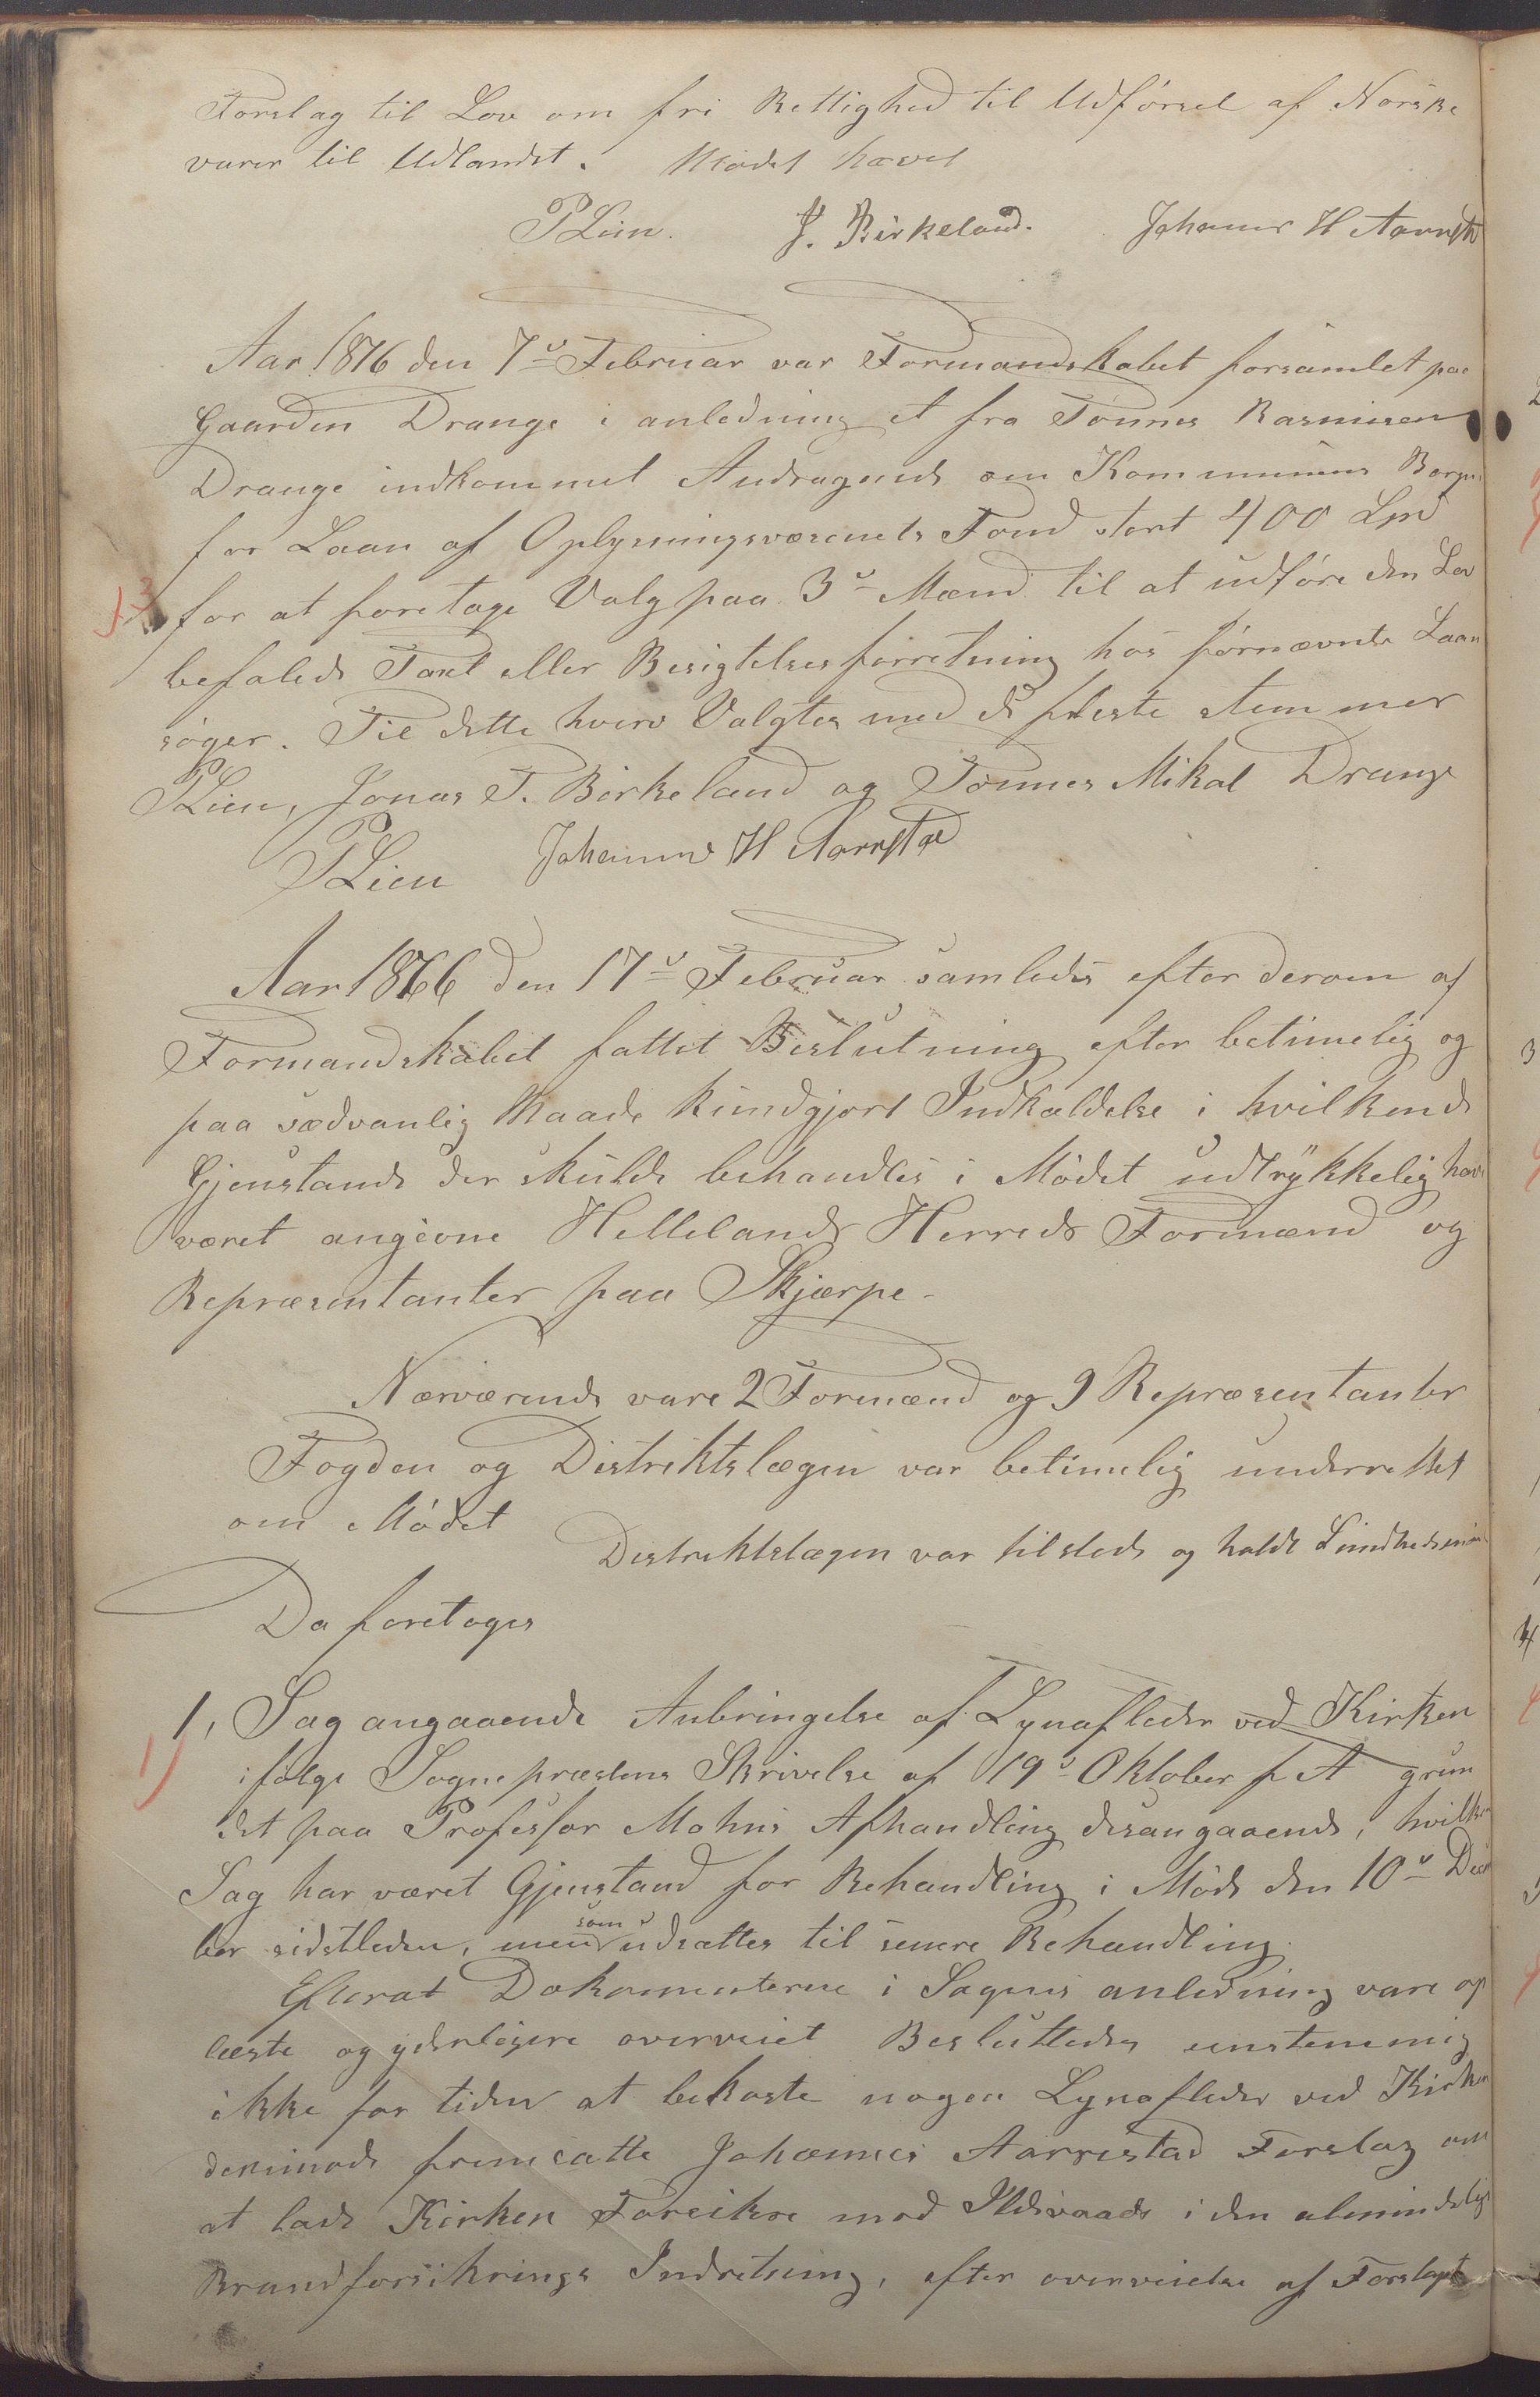 Forslag til Lov om fri Rettighed til Udførsel af Norske
varer til Udlandet. Mødet hævet
PLien. J. Birkeland. Johannes H Aarrestad
Aar 1876 den 7de Februar var Formandskabet forsamlet paa
Gaarden Drange i anledning et fra Tønnes Rasmusen
Drange indkommet Andragende om Kommunens Borgen
for Laan af Oplysningsvæsenets Fond stort 400 Spd
for at foretage Valg paa 3de Mænd til at udføre den Lov
befalede Taxt eller Besigtelsesforretning hos førnævnte Laan
søger. Til dette hverv Valgtes med de fleste stemmer
PLien, Jonas T. Birkeland og Tønnes Mikal Drange
PLien Johannes H Aarrestad
Aar 1876 den 17de Februar samledes efter derom af
Formandskabet fattet Beslutning efter betimelig og
paa sædvanlig Maade kundgjort Indkaldelse i hvilken de
Gjenstande der skulde behandles i Mødet udtrykkelig have
været angivne Hellelands Herreds Formænd og
Repræsentanter paa Skjærpe.
Nærværende vare 2 Formænd og 9 Repræsentanter
Fogden og Distriktslægen var betimelig underrettet
om Mødet
Distriktslægen var tilstede og holdt
Da foretoges
1, Sag angaaende Anbringelse af Lynafleder ved Kirken
1)
ifølge Sognepræstens Skrivelse af 19de Oktober f A grun
det paa Professor Mohns Afhandling desangaaende, hvilken
Sag har været Gjenstand for Behandling i Møde den 10de Decem
ber sidstleden, men som udsattes til senere Behandling.
Efterat Dokumenterne i Sagens anledning vare op
læste og yderligere overveiet Besluttedes enstemmig
ikke for tiden at bekoste nogen Lynafleder ved Kirken
derimod fremsatte Johannes Aarrestad Forslag om
at lade Kirken Forsikre mod Ildsvaade i den almindelige
Brandforsikrings Indretning, efter overveielse af Forslaget